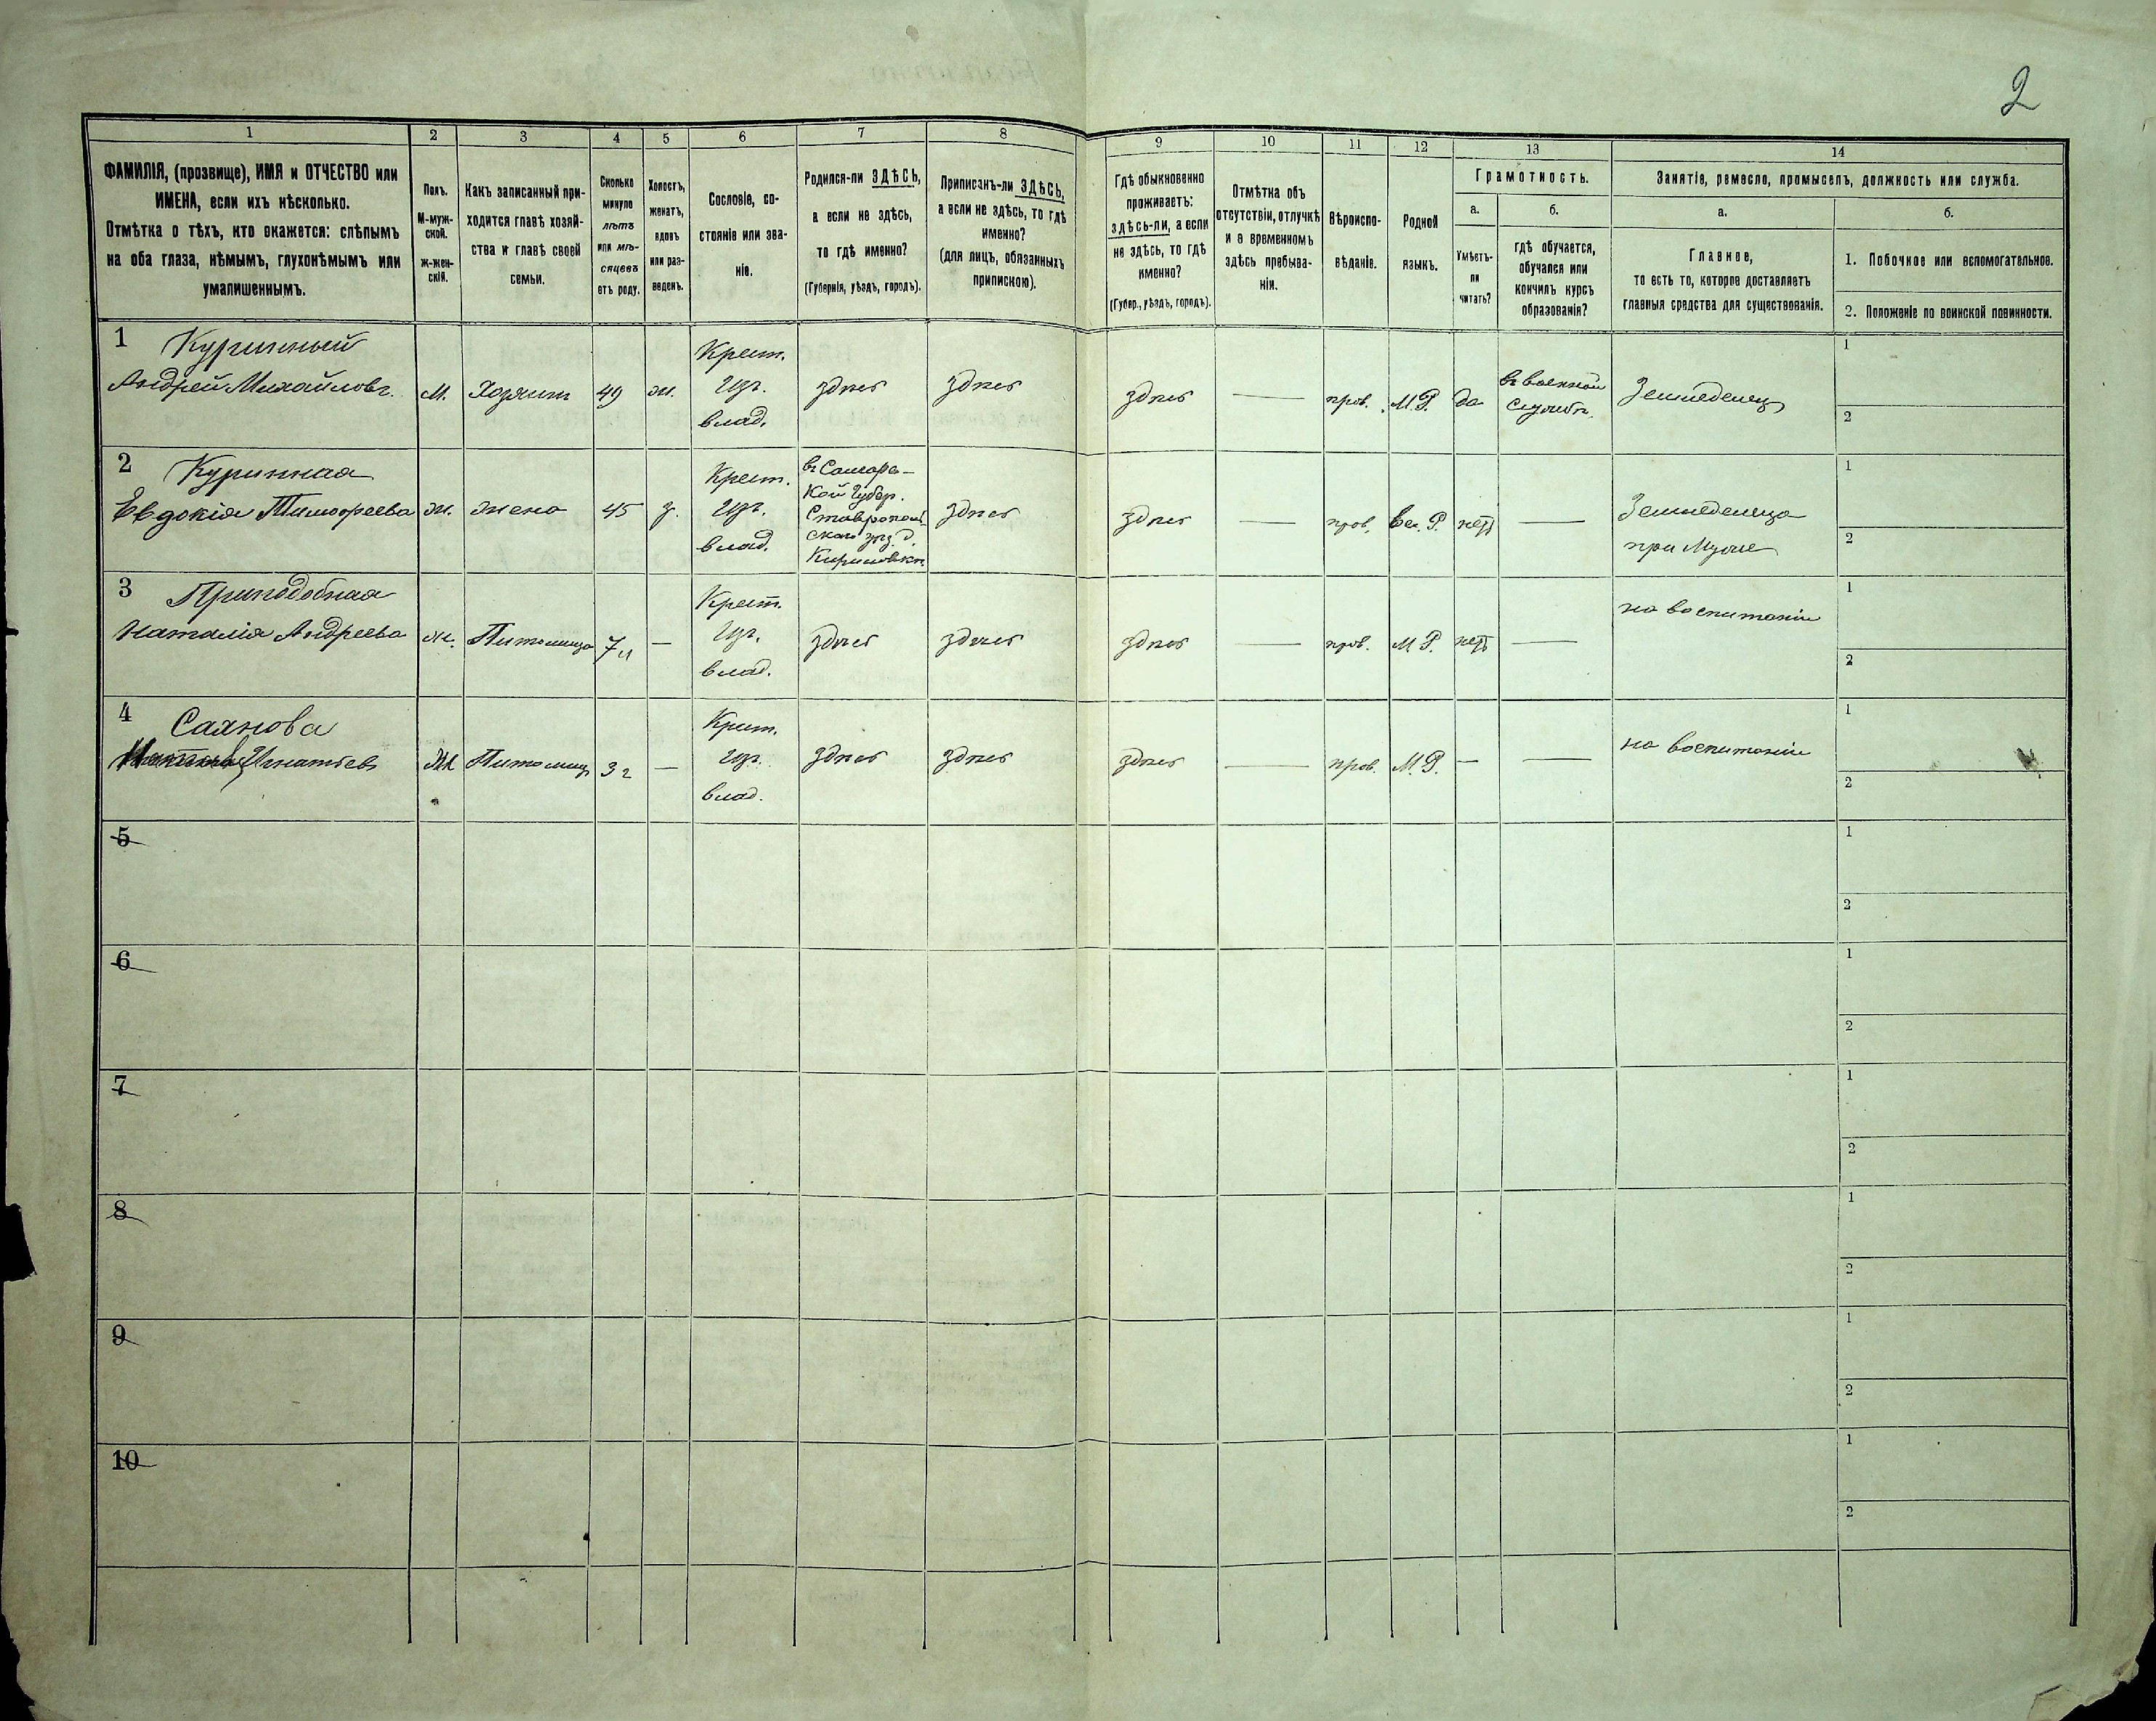 2
1 2 3 4 5 6 7 8 9 10 11 12 13 14
ФАМИЛІЯ, (прозвище), ИМЯ и ОТЧЕСТВО или
ИМЕНА, если ихъ нѣсколько.
Отмѣтка о тѣхъ, кто окажется: слѣпымъ
на оба глаза, нѣмымъ, глухонѣмымъ или
умалишеннымъ.
Полъ.
М-муж-
ской.
Ж-жен-
скій.
Какъ записанный при-
ходится главѣ хозяй-
ства и главѣ своей
семьи.
Сколько
минуло
лѣтъ
или мѣ-
сяцевъ
отъ роду.
Холостъ,
женатъ,
вдовъ
или раз-
веденъ.
Сословіе, со-
стояніе или зва-
ніе.
Родился-ли ЗДѢСЬ,
а если не здѣсь,
то гдѣ именно?
(Губернія, уѣздъ, городъ).
Приписанъ-ли ЗДѢСЬ,
а если не здѣсь, то гдѣ
именно?
(для лицъ, обязанныхъ
припискою).
Гдѣ обыкновенно
проживаетъ:
здѣсь-ли, а если
не здѣсь, то гдѣ
именно?
(Губер., уѣздъ, городъ).
Отмѣтка объ
отсутствіи, отлучкѣ
и о временномъ
здѣсь пребыва-
ніи.
Вѣроиспо-
вѣданіе.
Родной
языкъ.
Грамотность.
а.
Умѣетъ-
ли
читать?
б.
гдѣ обучается,
обучался или
кончилъ курсъ
образованія?
Занятіе, ремесло, промыселъ, должность или служба.
а.
Главное,
то есть то, которое доставляетъ
главныя средства для существованія.
б.
1. Побочное или вспомогательное.
2. Положеніе по воинской повинности.
1 Куринный
Андрей Михайловъ.
М.
Хозяинъ
49
ж.
Крест.
изъ
влад.
здѣсь
здѣсь
здѣсь
—
прав.
М.Р.
да
въ военной
службѣ.
Земледелец
1
2
2 Куринная
Евдокія Тимофеева
ж.
жена
45
з.
Крест.
изъ
влад.
въ Самарс-
кой Губер.
Ставрополь
скаго уѣз. д.
здѣсь
здѣсь
—
прав.
Вел. Р.
нетъ
—
Земледелица
при Муже
1
2
3 Приподобная
Наталія Андреева
ж.
Питомица
7
—
Крест.
изъ
влад.
здѣсь
здѣсь
здѣсь
—
прав.
М Р.
нетъ
—
на воспитаніи
1
2
4 Саянова
Игнатьев
Питомиц
3 г
—
Крест.
изъ
влад.
здѣсь
здѣсь
здѣсь
—
прав.
М.Р.
—
—
на воспитаніи
1
2
5
1
2
6
1
2
7
1
2
8
1
2
9
1
2
10
1
2